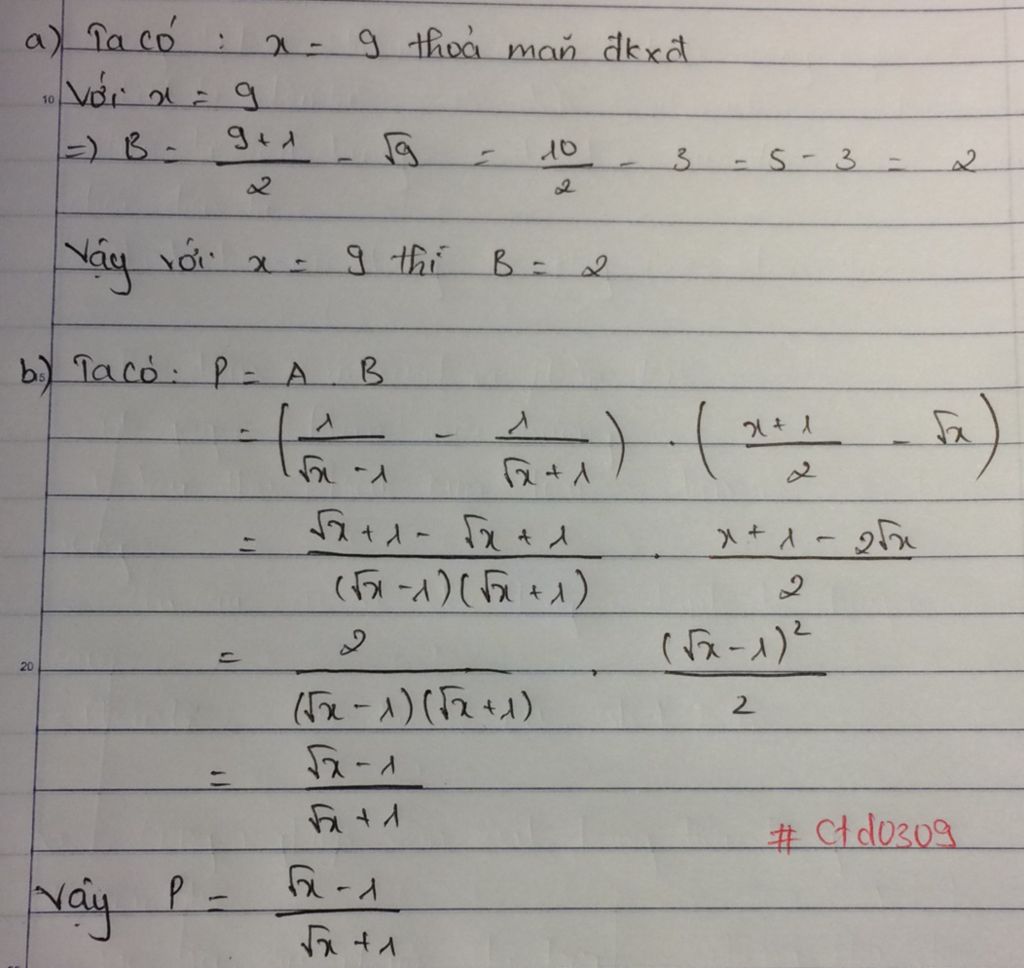 a) Ta có : x = 9 thoả mãn đkxđ
10 Với x = 9
=) B = \frac{9+1}{2} - √9 = \frac{10}{2} - 3 = 5 - 3 = 2
Vậy với x = 9 thì B = 2
b) Ta có: P = A . B
= (\frac{1}{√x - 1} - \frac{1}{√x + 1}) . (\frac{x+1}{2} - √x)
= \frac{√x + 1 - √x + 1}{(√x - 1)(√x + 1)} . \frac{x + 1 - 2√x}{2}
20 = \frac{2}{(√x - 1)(√x + 1)} . \frac{(√x - 1)^2}{2}
= \frac{√x - 1}{√x + 1}
# Ctd0309
Vậy P = \frac{√x - 1}{√x + 1}